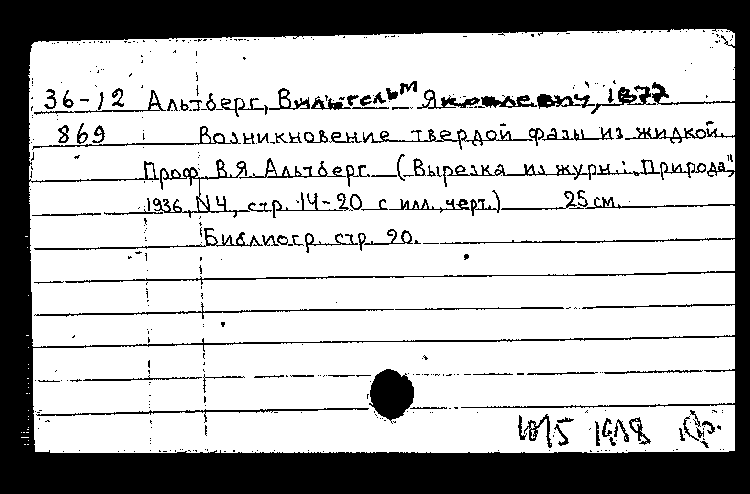 36-12 Альтберг, Вильгельм Яковлевич, 1877
869 Возникновение твердой фазы из жидкой.
Проф. В.Я. Альтберг. (Вырезка из журн.: „Природа",
1936, N4, стр. 14-20 с илл., черт.) 25 см.
Библиогр. стр. 20.